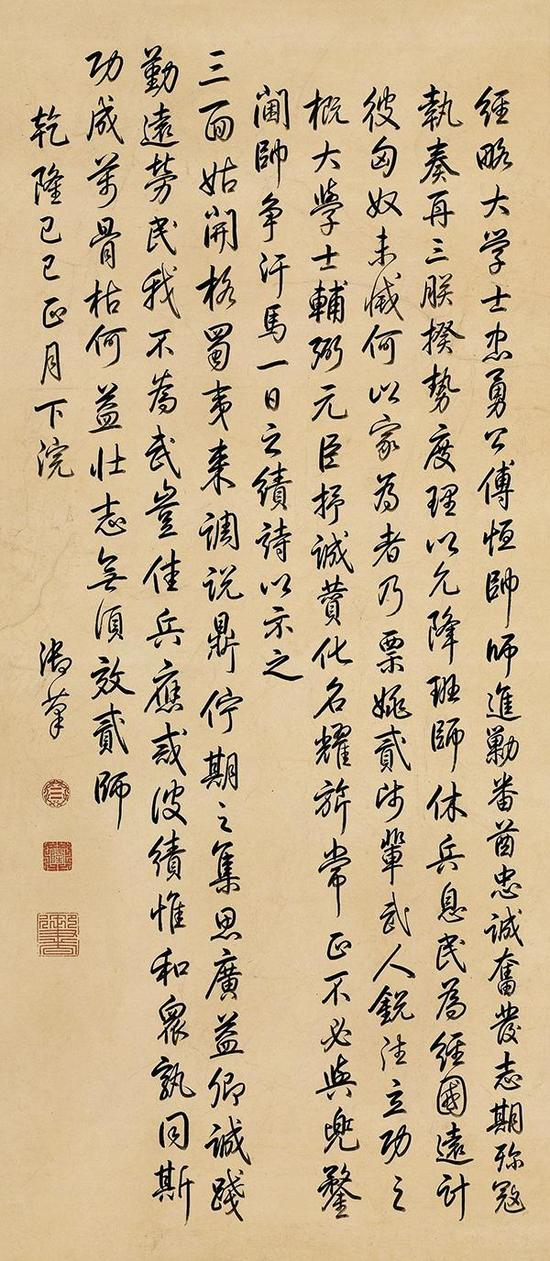 經略大学士忠勇公傅恒帥師進勦番酋忠誠奮發志期殄寇
執奏再三朕揆勢度理以允降班師休兵息民為經國遠計
彼匈奴未滅何以家為者乃票姚貳師輩武人銳注立功之
概大學士輔弼元臣抒誠贊化名耀旂常正不必與兜鍪
閫帥争汗馬一日之績詩以示之
三面姑開格蜀夷来調說鼎佇期之集思廣益卿誠踐
勤遠勞民我不為武豈佳兵應戒彼績惟和衆孰同斯
功成萬骨枯何益壮志無須效貳師
乾隆己巳正月下浣
御筆